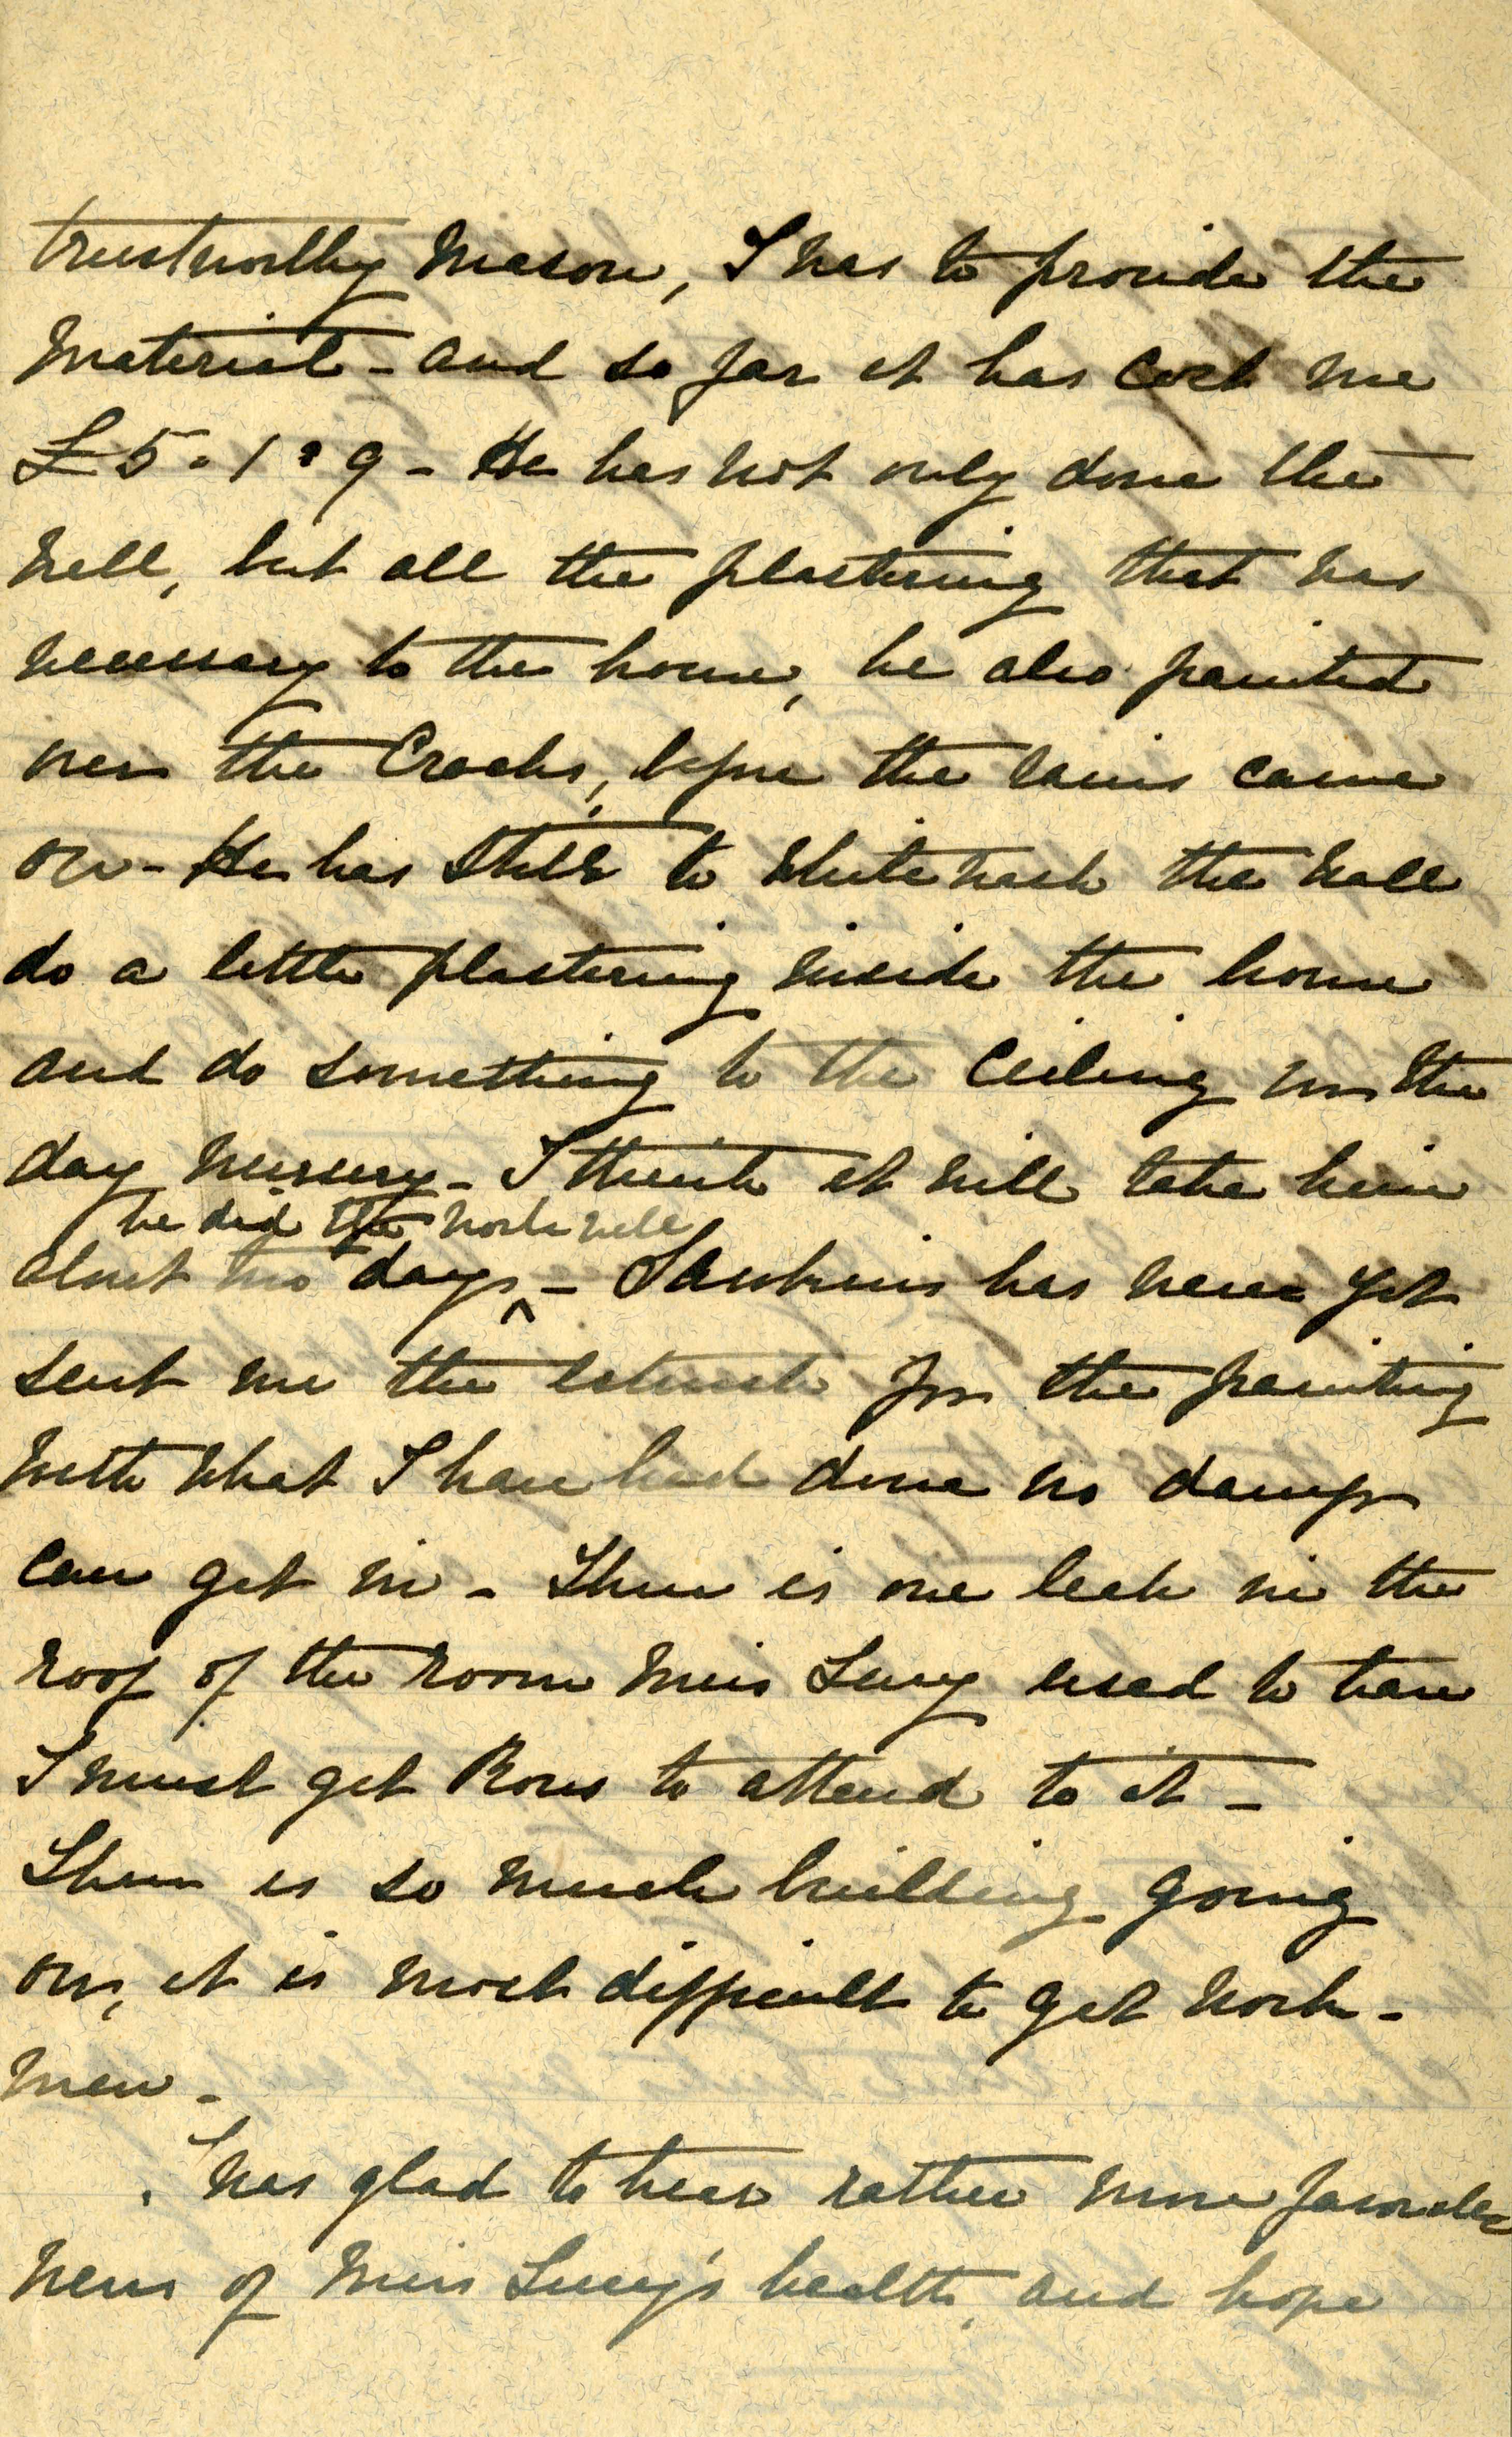 trustworthy Mason, I has to provide the
Material - and so far it has cost me
£5.1.9 - He has not only done the
wall, but all the plastering that was
necessary to the house, he also painted
over the Cracks, before the rains came
on - He has still to Whitewash the wall
do a little plastering inside the house
and do something to the Ceiling in the
day nursery - I think it will take him
he did the work well
about two days ^ - has never yet
sent me the estimate for the painting
With what I have had done no damp
can get in - There is one leak in the
roof of the room Miss Lucy used to have
I must get Rous to attend to it -
There is so much building going
on, it is most difficult to get work-
men -
I was glad to hear rather more favorable
news of Miss Lucy's health, and hope